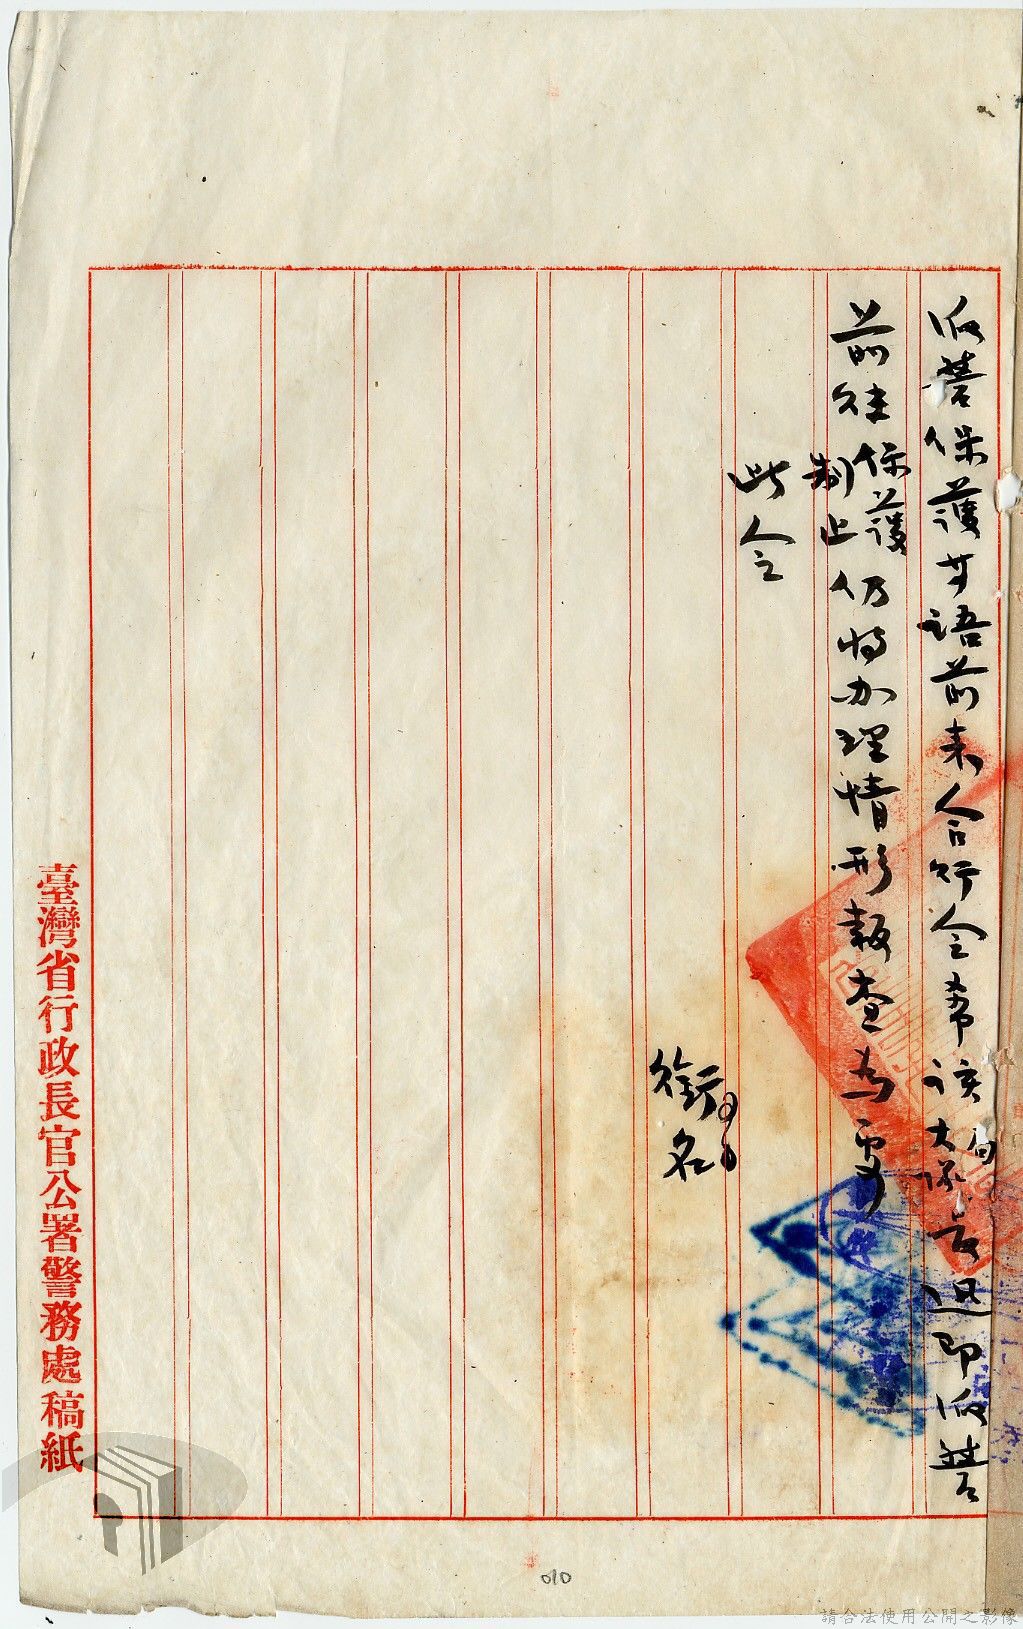 派警保護等語前來合行令希該大隊長迅即派警
局
前往保護仍將辦理情形報查為要
制止
此令
銜名
臺灣省行政長官公署警務處稿紙
010
請合法使用公開之影像